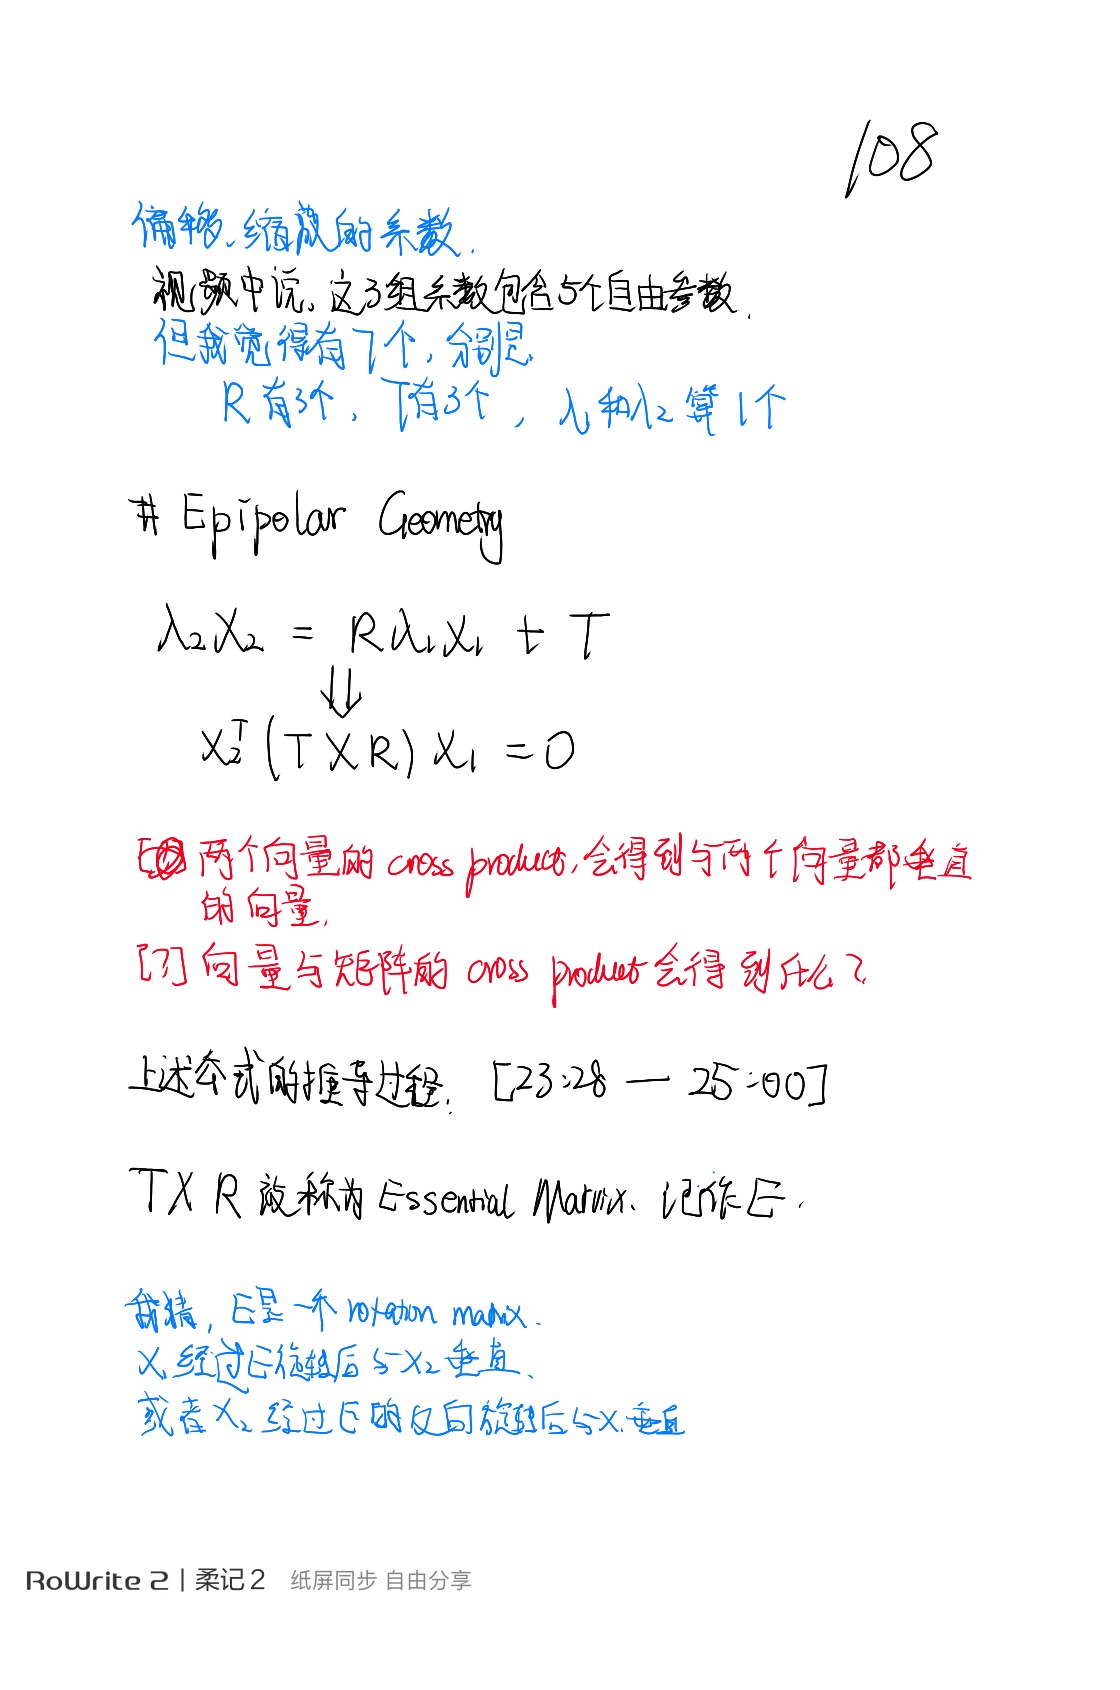 108
偏移、缩放的系数.
视频中说,这3组系数包含5个自由参数.
但我觉得有7个,分别是
R有3个, T有3个, λ₁和λ₂算1个
# Epipolar Geometry
λ₂X₂ = Rλ₁X₁ + T
⇓
X₂ᵀ(T×R)X₁ = 0
两个向量的cross product,会得到与两个向量都垂直
的向量.
[?] 向量与矩阵的cross product会得到什么?
上述公式的推导过程. [23:28 — 25:00]
T×R 被称为 Essential Matrix、记作E.
我猜, E是一个rotation matrix.
X₁经过E旋转后与X₂垂直.
或者X₂经过E的反向旋转后与X₁垂直
RoWrite 2 | 柔记2 纸屏同步 自由分享